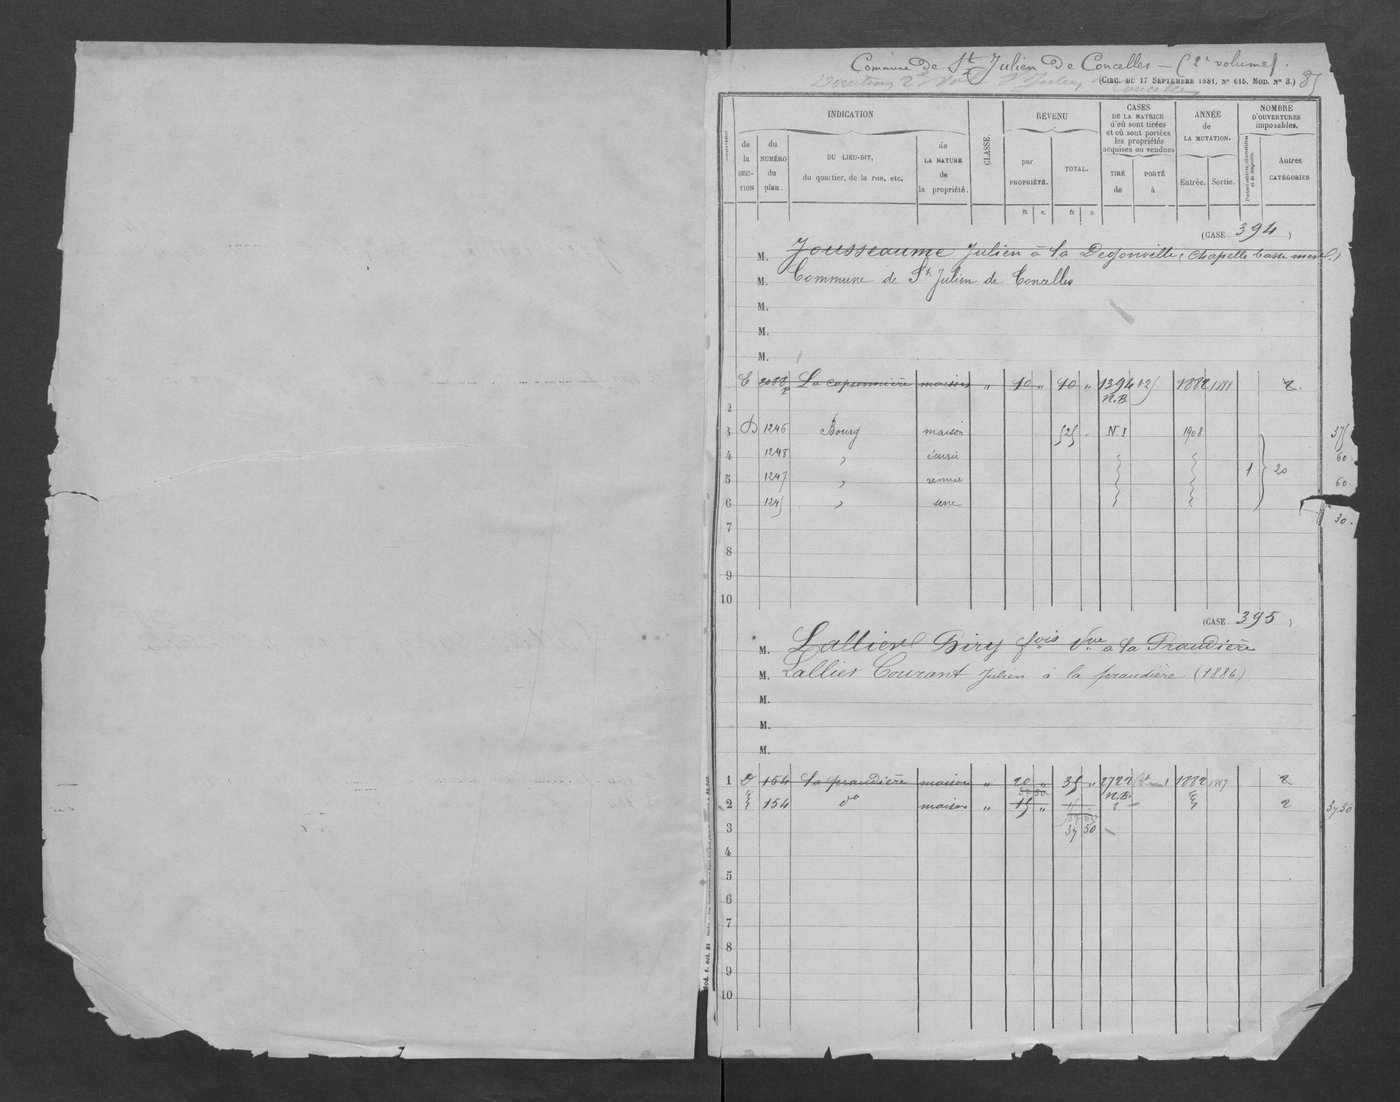 Commune de St Julien de Concelles — (2e volume).
(CIRC. DU 17 SEPTEMBRE 1881, No 615. MOD. No 3.)
INDICATION
de la SECTION
du NUMÉRO du plan.
DU LIEU-DIT, du quartier, de la rue, etc.
de LA NATURE de la propriété.
CLASSE.
REVENU
par PROPRIÉTÉ.
TOTAL.
fr. c. fr. c.
CASES DE LA MATRICE d'où sont tirées et où sont portées les propriétés acquises ou vendues
TIRÉ de
PORTÉ à
ANNÉE de LA MUTATION.
Entrée. Sortie.
NOMBRE D'OUVERTURES imposables.
Autres CATÉGORIES
(CASE 394)
M. Jousseaume Julien à la
M. Commune de St Julien de Concelles
M.
M.
M.
E 2088 p La caponnière maison " 10 " 10 " 1394 125 1882 1884 2.
N.B.
2
3 D 1246 Bourg maison 525 . N.I 1908 375
4 1248 " écurie 60.
5 1247 " remise 1 20 60
6 1245 " serre 30.
7
8
9
10
(CASE 395)
M. Lallier Biry fois Vve à la Praudière
M. Lallier Courant Julien à la praudière (1886)
M.
M.
M.
1 154 La praudière maison " 20 " 35 " 2722 1882 1887 2
N.B.
2 154 do maison " 15 " 2 37 50
3 37 50
4
5
6
7
8
9
10